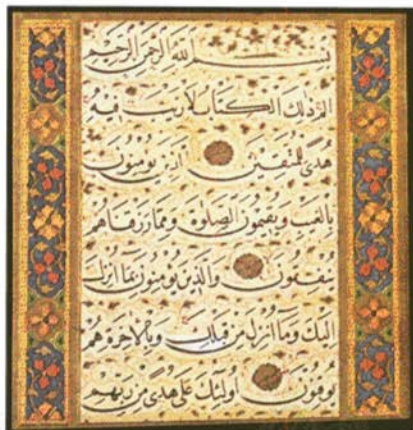 بسم الله الرحمن الرحيم
الم ذلك الكتاب لا ريب فيه
هدى للمتقين الذين يؤمنون
بالغيب ويقيمون الصلوة ومما رزقناهم
ينفقون والذين يؤمنون بما انزل
اليك وما انزل من قبلك وبالاخرة هم
يوقنون اولئك على هدى من ربهم